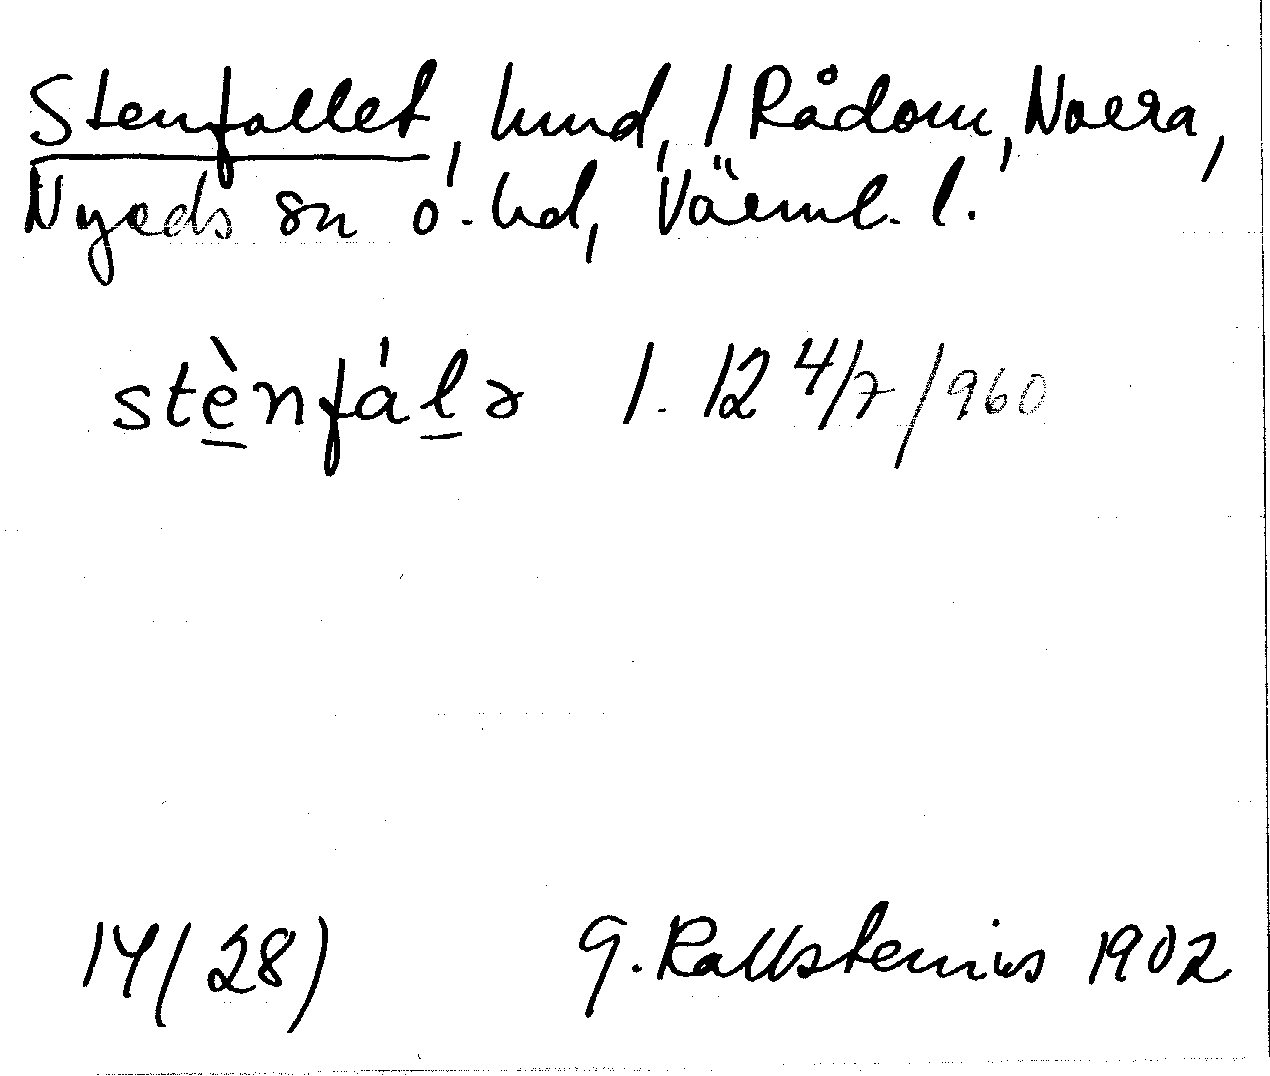 Stenfallet, hmd, 1 Rådom, Norra,
Nyeds sn o. hd, Värml. l.
stènfálə 1. 12 4/7 1960
14 (28) G. Kallstenius 1902